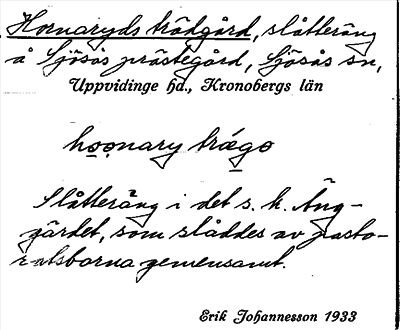 Hornaryds trädgård, slåtteräng
å Sjösås prästegård, Sjösås sn,
Uppvidinge hd., Kronobergs län
hoonary trægo
Slåtteräng i det s. k. Äng-
gärdet, som slåddes av pasto-
ratsborna gemensamt.
Erik Johannesson 1933